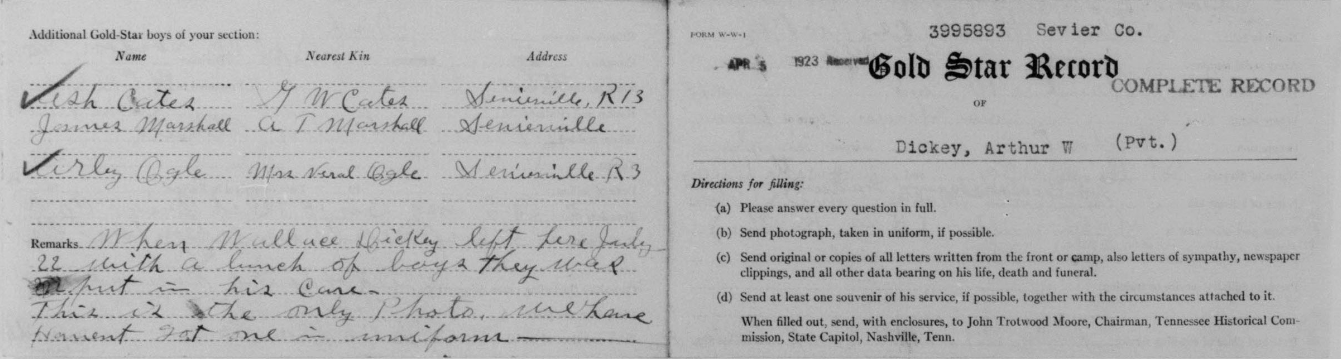 Additional Gold-Star boys of your section:
Name Nearest Kin Address
Cates G W Cates Sevierville, R13
James Marshall A T Marshall Sevierville
Ogle Mrs Ogle Sevierville R3
Remarks. When Wallace Dickey left here July
22 with a bunch of boys they was
put in his care-
This is the only Photo. we have
Havent got one in uniform
FORM W-W-1
3995893 Sevier Co.
APR 5 1923 Received
Gold Star Record
COMPLETE RECORD
OF
Dickey, Arthur W (Pvt.)
Directions for filling:
(a) Please answer every question in full.
(b) Send photograph, taken in uniform, if possible.
(c) Send original or copies of all letters written from the front or camp, also letters of sympathy, newspaper
clippings, and all other data bearing on his life, death and funeral.
(d) Send at least one souvenir of his service, if possible, together with the circumstances attached to it.
When filled out, send, with enclosures, to John Trotwood Moore, Chairman, Tennessee Historical Com-
mission, State Capitol, Nashville, Tenn.